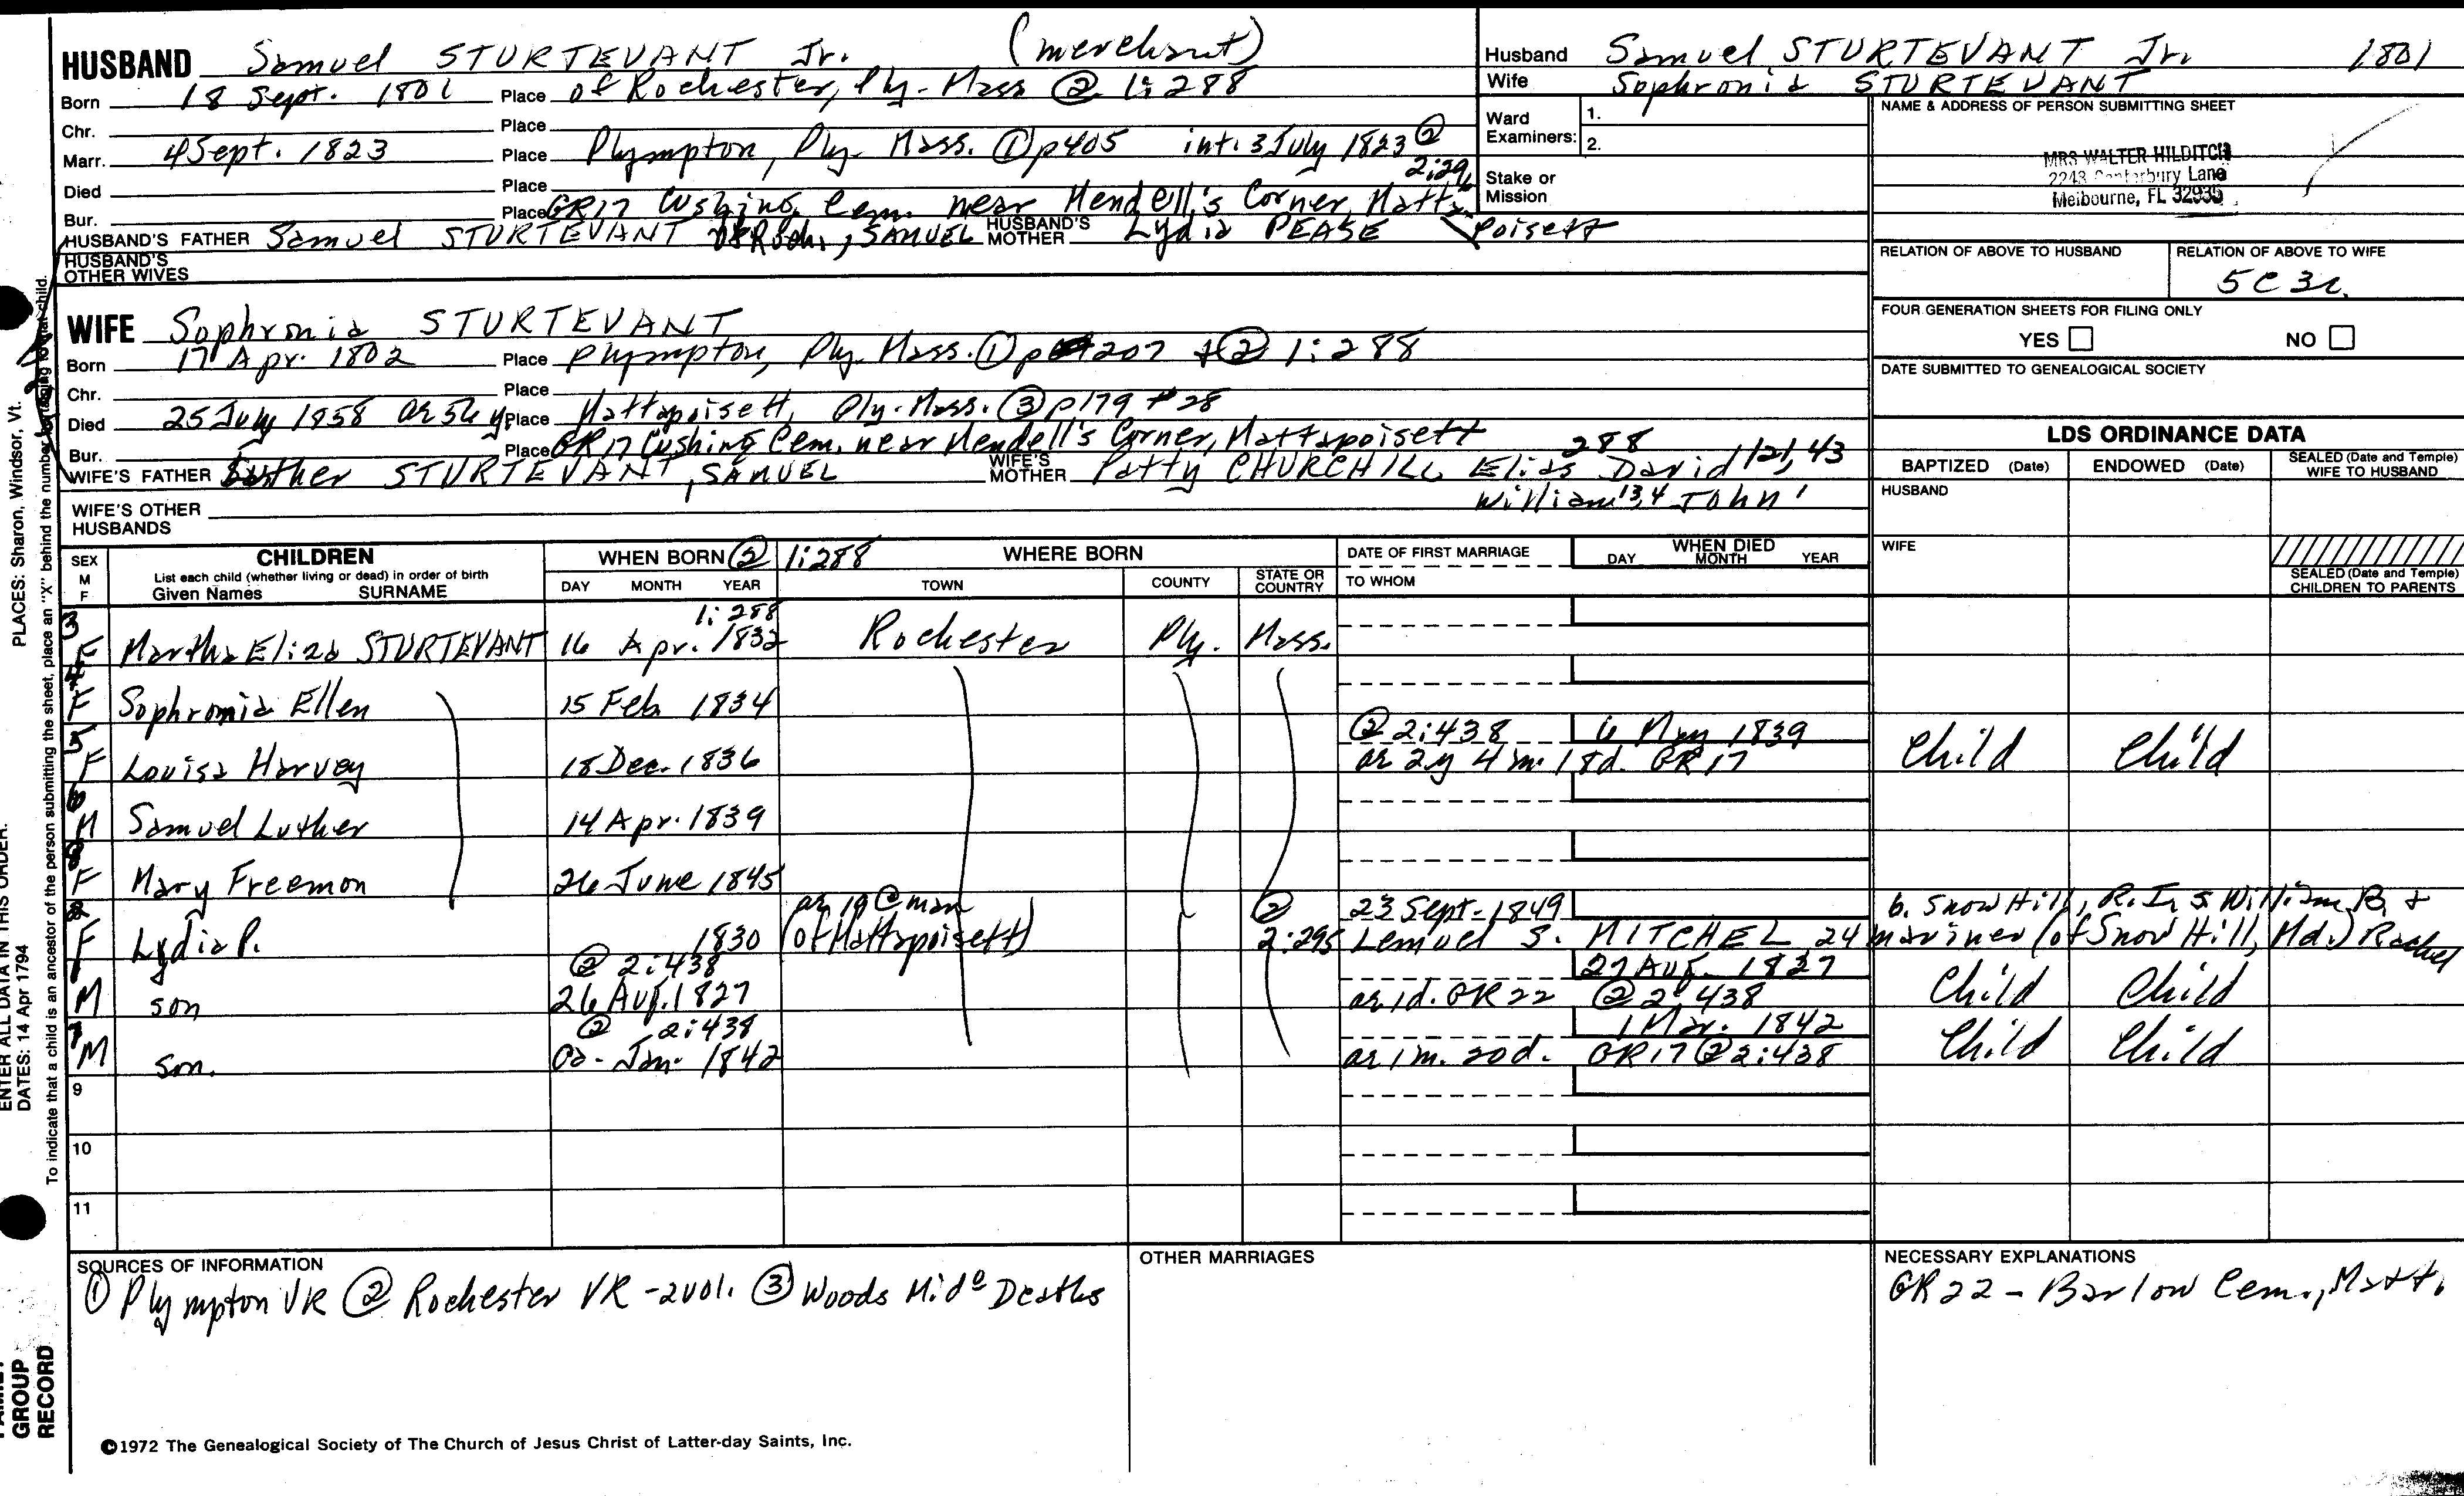 HUSBAND Samuel STURTEVANT Jr. (merchant)
Born 18 Sept. 1801 Place of Rochester, Ply. Mass ② 1:288
Chr. Place
Marr. 4 Sept. 1823 Place Plympton, Ply. Mass. ① p405 int. 3 July 1823 ② 2:296
Died Place
Bur. Place GR17 Cushing Cem. near Mendell's Corner, Mattapoisett
HUSBAND'S FATHER Samuel STURTEVANT of Roch., SAMUEL HUSBAND'S MOTHER Lydia PEASE
HUSBAND'S OTHER WIVES
WIFE Sophronia STURTEVANT
Born 17 Apr. 1802 Place Plympton, Ply. Mass. ① p 207 + ② 1:288
Chr. Place
Died 25 July 1858 ae 56 y Place Mattapoisett, Ply. Mass. ③ p179 #28
Bur. Place GR17 Cushing Cem. near Mendell's Corner, Mattapoisett
WIFE'S FATHER Luther STURTEVANT, SAMUEL WIFE'S MOTHER Patty CHURCHILL 288 Elias David
William 13,4 John 1
WIFE'S OTHER HUSBANDS
Husband Samuel STURTEVANT Jr. 1801
Wife Sophronia STURTEVANT
Ward Examiners: 1.
2.
Stake or Mission
NAME & ADDRESS OF PERSON SUBMITTING SHEET
MRS WALTER HILDITCH
2243 Canterbury Lane
Melbourne, FL 32935
RELATION OF ABOVE TO HUSBAND
RELATION OF ABOVE TO WIFE
5C3r.
FOUR GENERATION SHEETS FOR FILING ONLY
YES NO
DATE SUBMITTED TO GENEALOGICAL SOCIETY
LDS ORDINANCE DATA
BAPTIZED (Date) ENDOWED (Date) SEALED (Date and Temple) WIFE TO HUSBAND
HUSBAND
WIFE
SEALED (Date and Temple) CHILDREN TO PARENTS
SEX M F
CHILDREN
List each child (whether living or dead) in order of birth
Given Names SURNAME
WHEN BORN ② 1:288
DAY MONTH YEAR
WHERE BORN
TOWN COUNTY STATE OR COUNTRY
DATE OF FIRST MARRIAGE
TO WHOM
WHEN DIED
DAY MONTH YEAR
1:288
3 F Martha Eliza STURTEVANT 16 Apr. 1832 Rochester Ply. Mass.
4 F Sophronia Ellen 15 Feb 1834
5 ② 2:438 6 May 1839
F Louisa Harvey 18 Dec. 1836 ae 2y 4 m. 18d. GR17 Child Child
6 M Samuel Luther 14 Apr. 1839
8 F Mary Freemon 26 June 1845
2 ae 19 @ mar ② 23 Sept. 1849 b. Snow Hill, R.I., s. William B. +
F Lydia P. 1830 (of Mattapoisett) 2:295 Lemuel S. MITCHEL 24 mariner (of Snow Hill, Md.) Rachel
1 ② 2:438 27 Aug. 1827
M son 26 Aug. 1827 ae 1d. GR22 ② 2:438 Child Child
7 ② 2:438 1 Mar. 1842
M son. ca. Jan. 1842 ae 1 m. 20d. GR17 ② 2:438 Child Child
9
10
11
SOURCES OF INFORMATION
① Plympton VR ② Rochester VR -2vol. ③ Woods Deaths
OTHER MARRIAGES
NECESSARY EXPLANATIONS
GR22 - Barlow Cem., Matt.
©1972 The Genealogical Society of The Church of Jesus Christ of Latter-day Saints, Inc.
GROUP
RECORD
ENTER ALL DATA IN THIS ORDER:
DATES: 14 Apr 1794
PLACES: Sharon, Windsor, Vt.
To indicate that a child is an ancestor of the person submitting the sheet, place an "X" behind the number pertaining to that child.